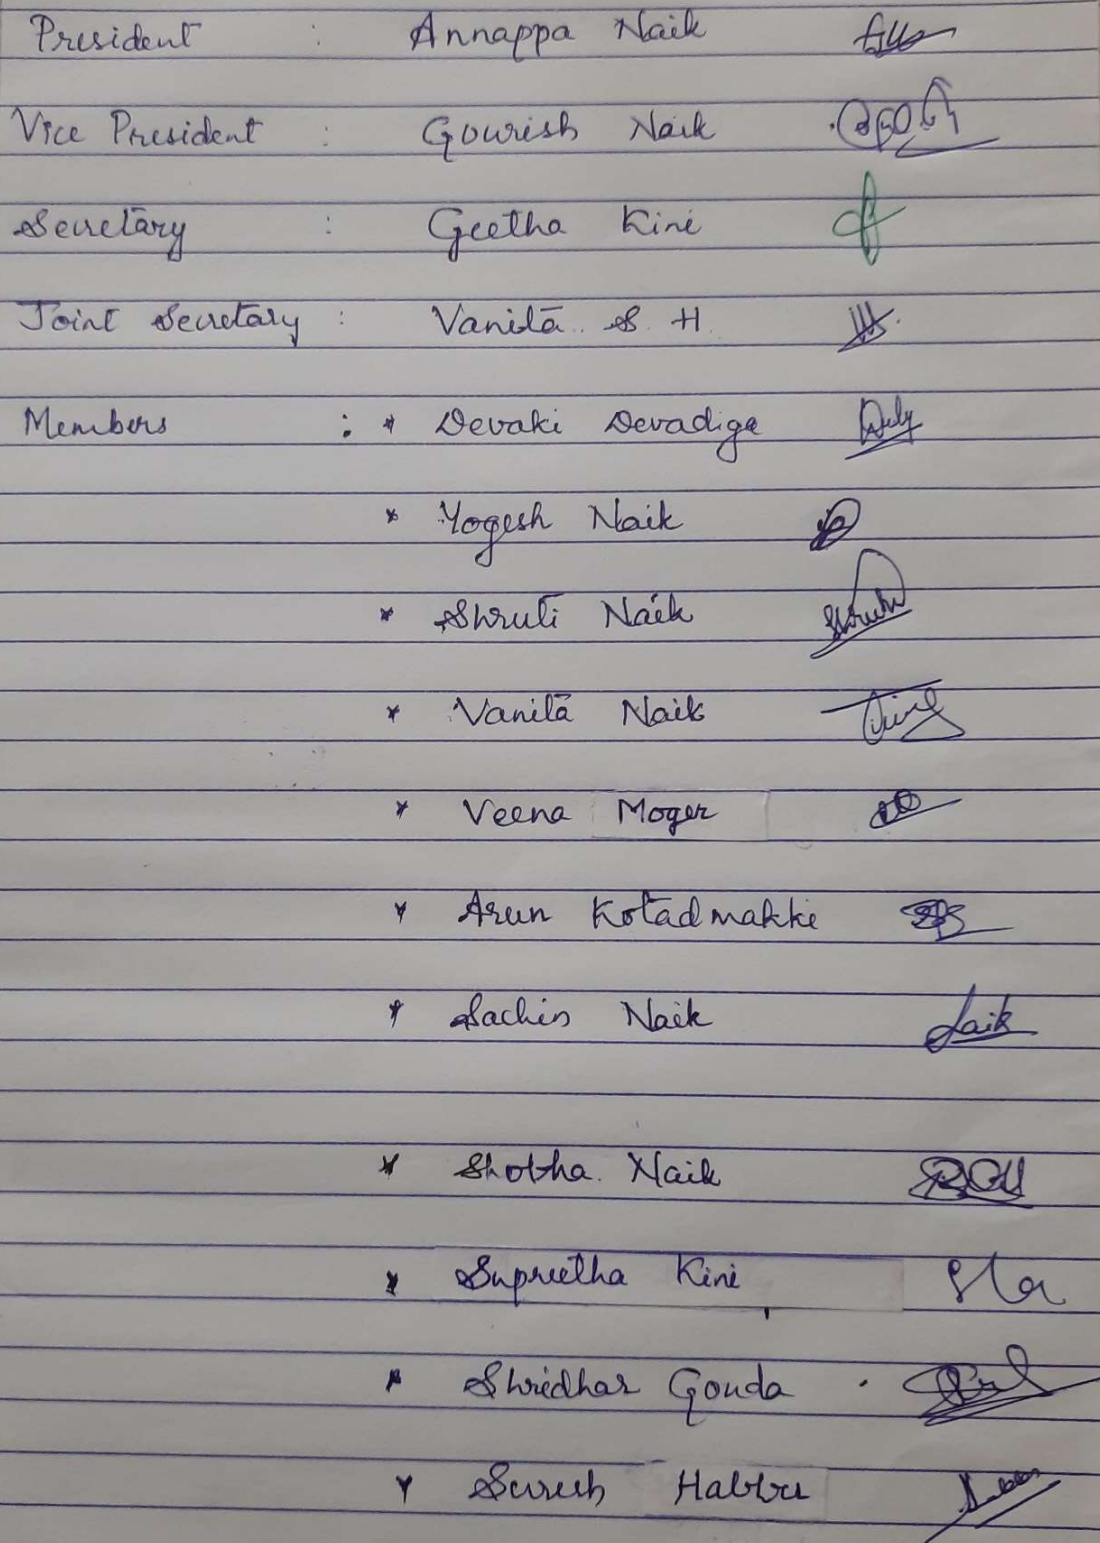 President : Annappa Naik
Vice President : Gourish Naik
Secretary : Geetha Kini
Joint Secretary : Vanita S. H
Members : * Devaki Devadiga
* Yogesh Naik
* Shruti Naik Shruti
* Vanita Naik
* Veena Moger
* Arun Kotadmakki
* Sachin Naik
* Shobha Naik
* Supreetha Kini
* Shridhar Gouda
* Suresh Habbu